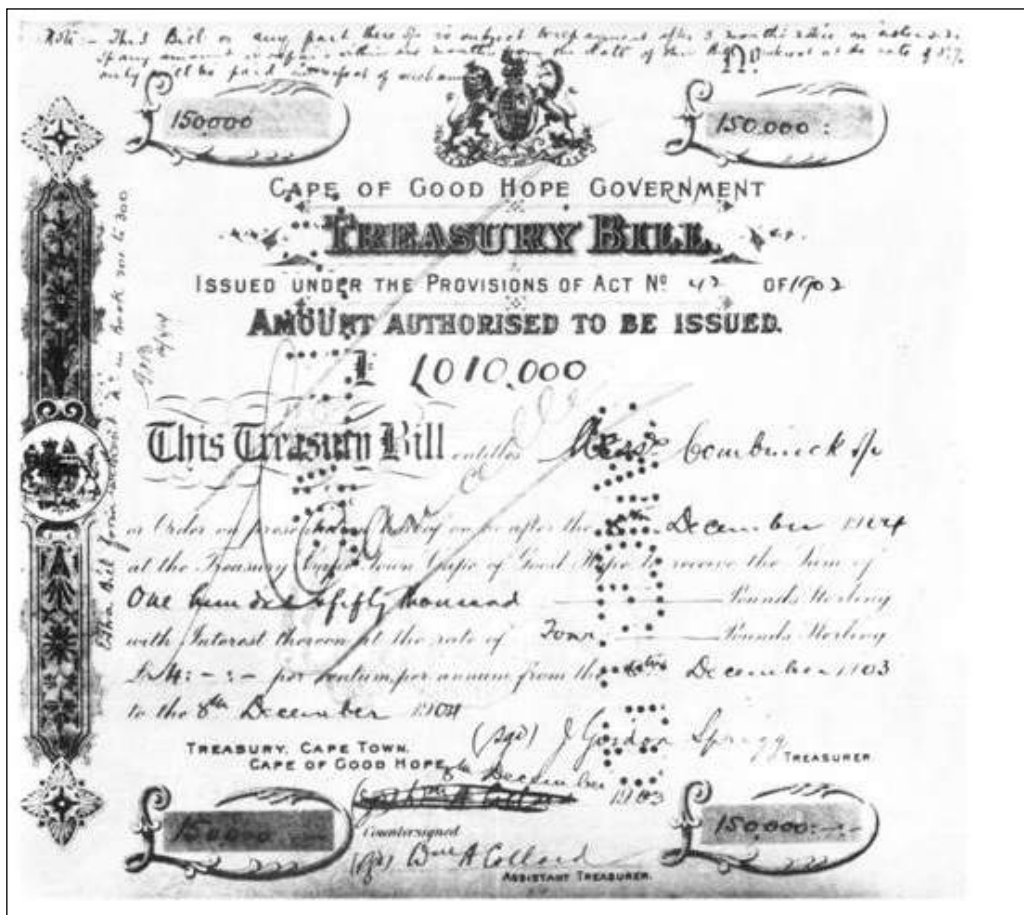 Note - This Bill or any part thereof is subject to repayment after 3 months notice
If any amount is repaid within six months from the date of this Bill interest at the rate of 3%
only will be paid in respect of such amount
150000
150.000:
CAPE OF GOOD HOPE GOVERNMENT
TREASURY BILL.
ISSUED UNDER THE PROVISIONS OF ACT No 42 OF 1902
AMOUNT AUTHORISED TO BE ISSUED.
£ 1,010,000
This Treasury Bill entitles Messrs Combrinck
or Order on presentation on or after the 8th December 1904
at the Treasury Cape Town Cape of Good Hope to receive the Sum of
One hundred & fifty thousand Pounds Sterling
with Interest thereon at the rate of Four Pounds Sterling
£4:-:- per centum per annum from the December 1903
to the 8th December 1904
(sgd) J Gordon Sprigg
TREASURY, CAPE TOWN.
TREASURER
CAPE OF GOOD HOPE
8th December 1903
150,000
150,000:-:-
Countersigned
(sgd) Wm A Collard
ASSISTANT TREASURER.